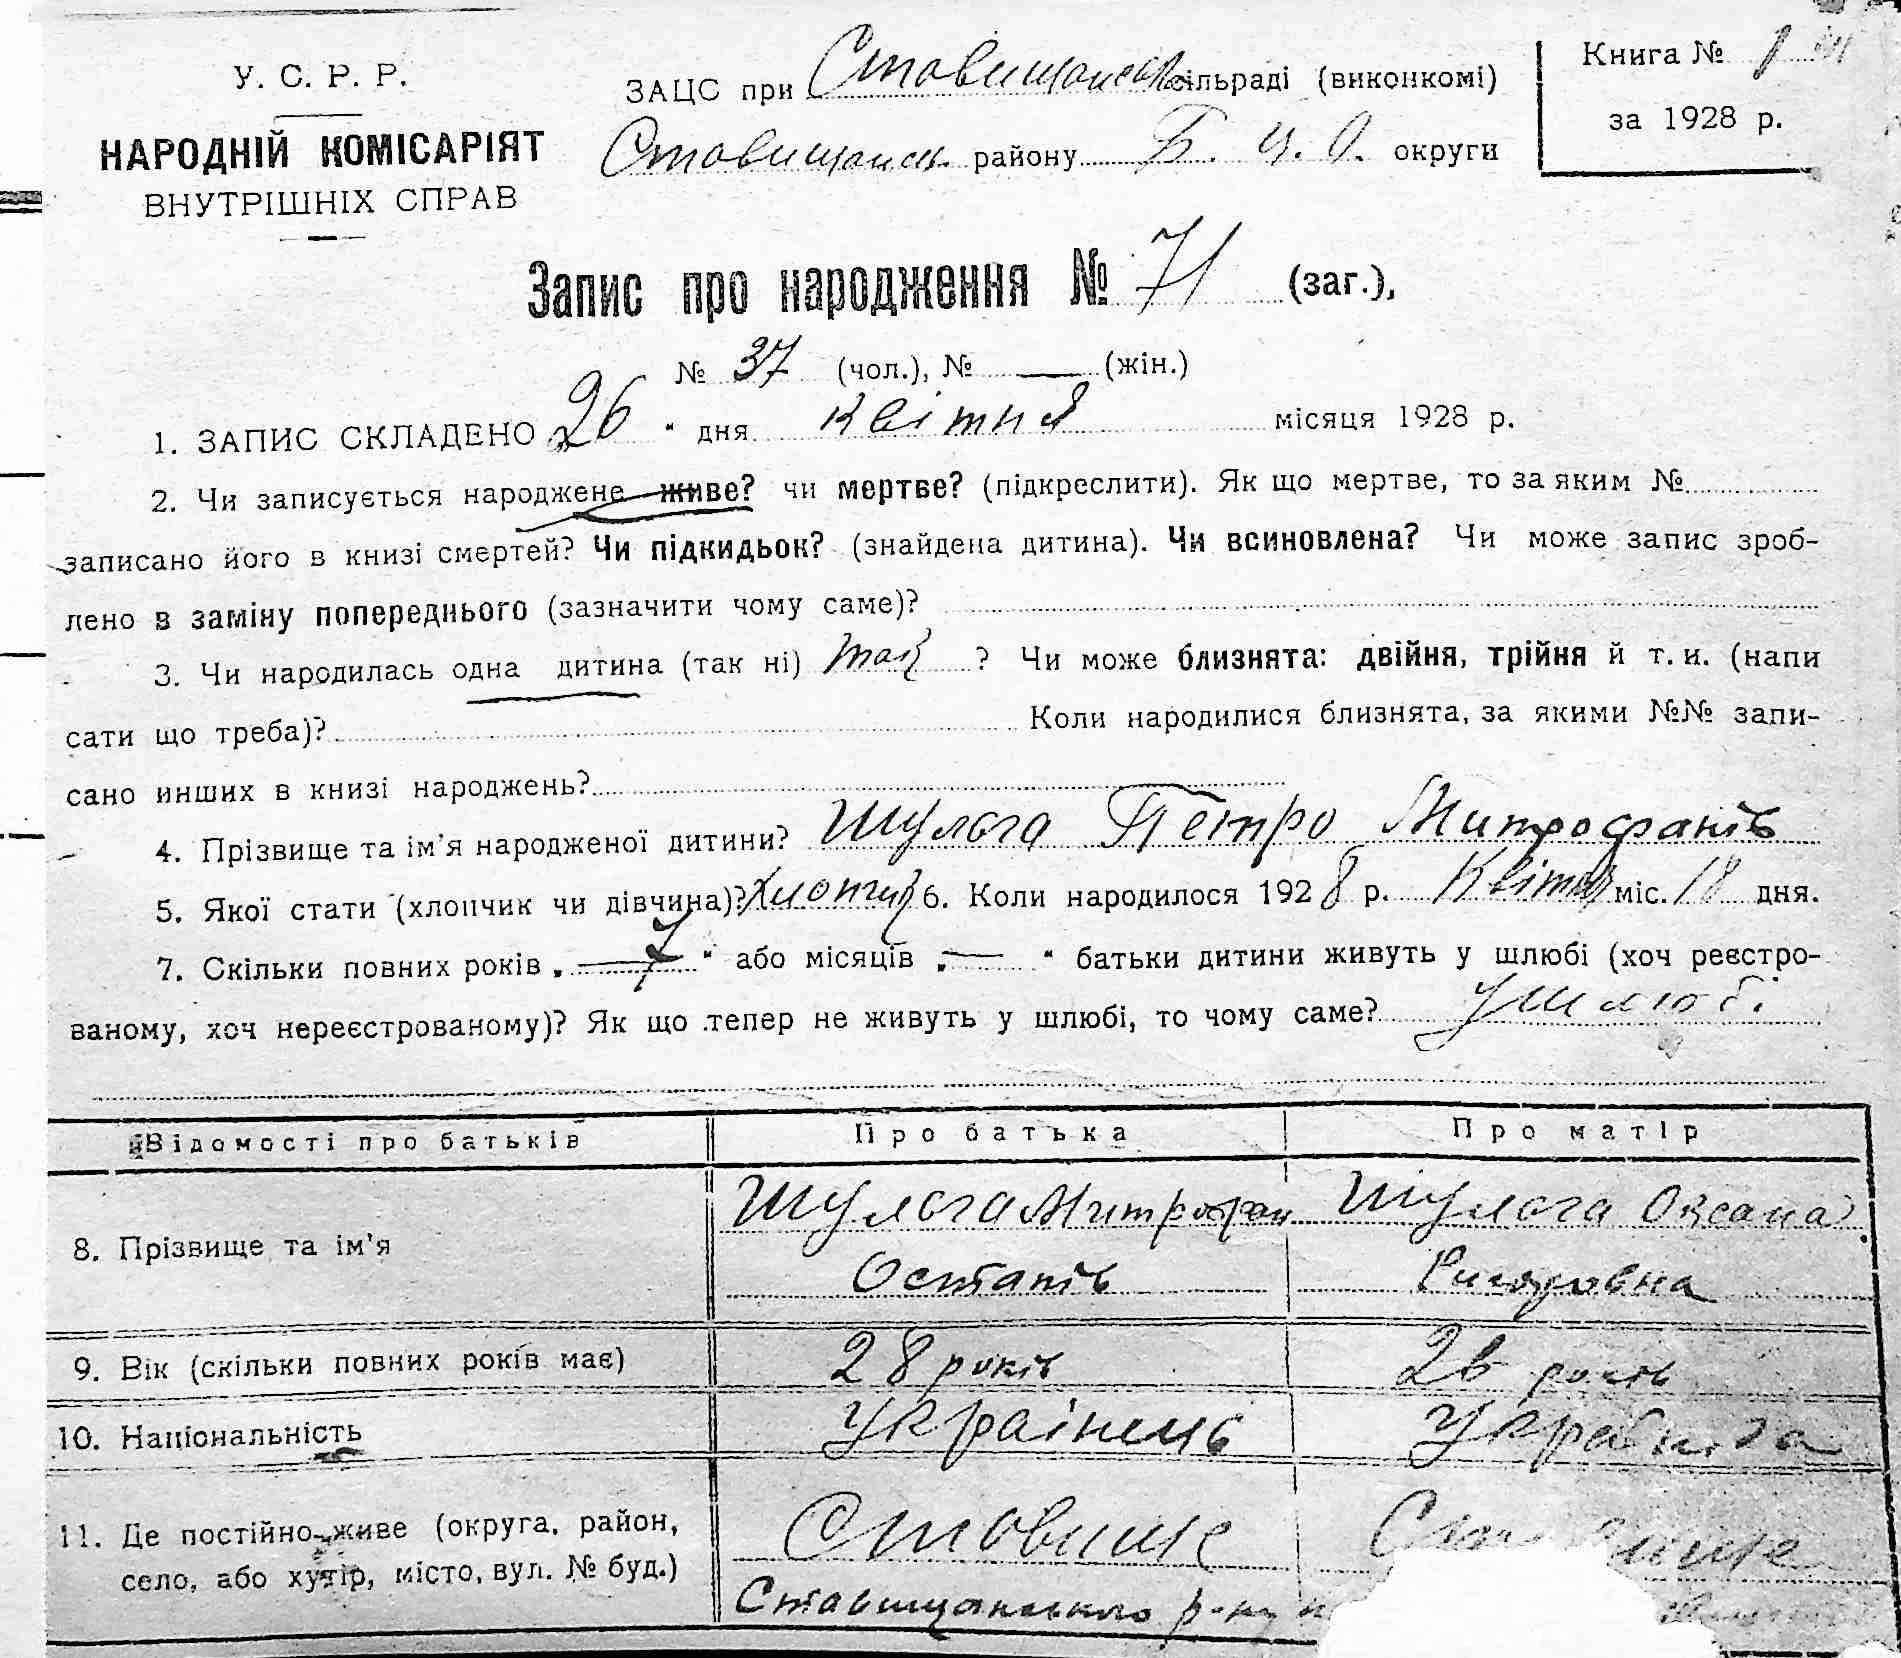 У. С. Р. Р.
НАРОДНІЙ КОМІСАРІЯТ
ВНУТРІШНІХ СПРАВ
ЗАЦС при Ставищанськ сільраді (виконкомі)
Ставищанськ району Б. Ц. О. округи
Книга № 1
за 1928 р.
Запис про народження № 71 (заг.),
№ 37 (чол.), № — (жін.)
1. ЗАПИС СКЛАДЕНО „ 26 “ дня квітня місяця 1928 р.
2. Чи записується народжене живе? чи мертве? (підкреслити). Як що мертве, то за яким №
записано його в книзі смертей? Чи підкидьок? (знайдена дитина). Чи всиновлена? Чи може запис зроб-
лено в заміну попереднього (зазначити чому саме)?
3. Чи народилась одна дитина (так ні) так ? Чи може близнята: двійня, трійня й т. и. (напи
сати що треба)? Коли народилися близнята, за якими №№ запи-
сано инших в книзі народжень?
4. Прізвище та ім’я народженої дитини? Шульга Петро Митрофанів
5. Якої стати (хлопчик чи дівчина)? хлопчик 6. Коли народилося 1928 р. Квітня міс. 18 дня.
7. Скільки повних років „ 7 “ або місяців „ — “ батьки дитини живуть у шлюбі (хоч реєстро-
ваному, хоч нереєстрованому)? Як що тепер не живуть у шлюбі, то чому саме? у шлюбі
Відомості про батьків Про батька Про матір
8. Прізвище та ім’я Шульга Митрофан Шульга Оксана
Остапів
9. Вік (скільки повних років має) 28 років 26 років
10. Національність Українець Українка
11. Де постійно живе (округа, район, Ставище Ставище
село, або хутір, місто, вул. № буд.) Ставищанського р-ну